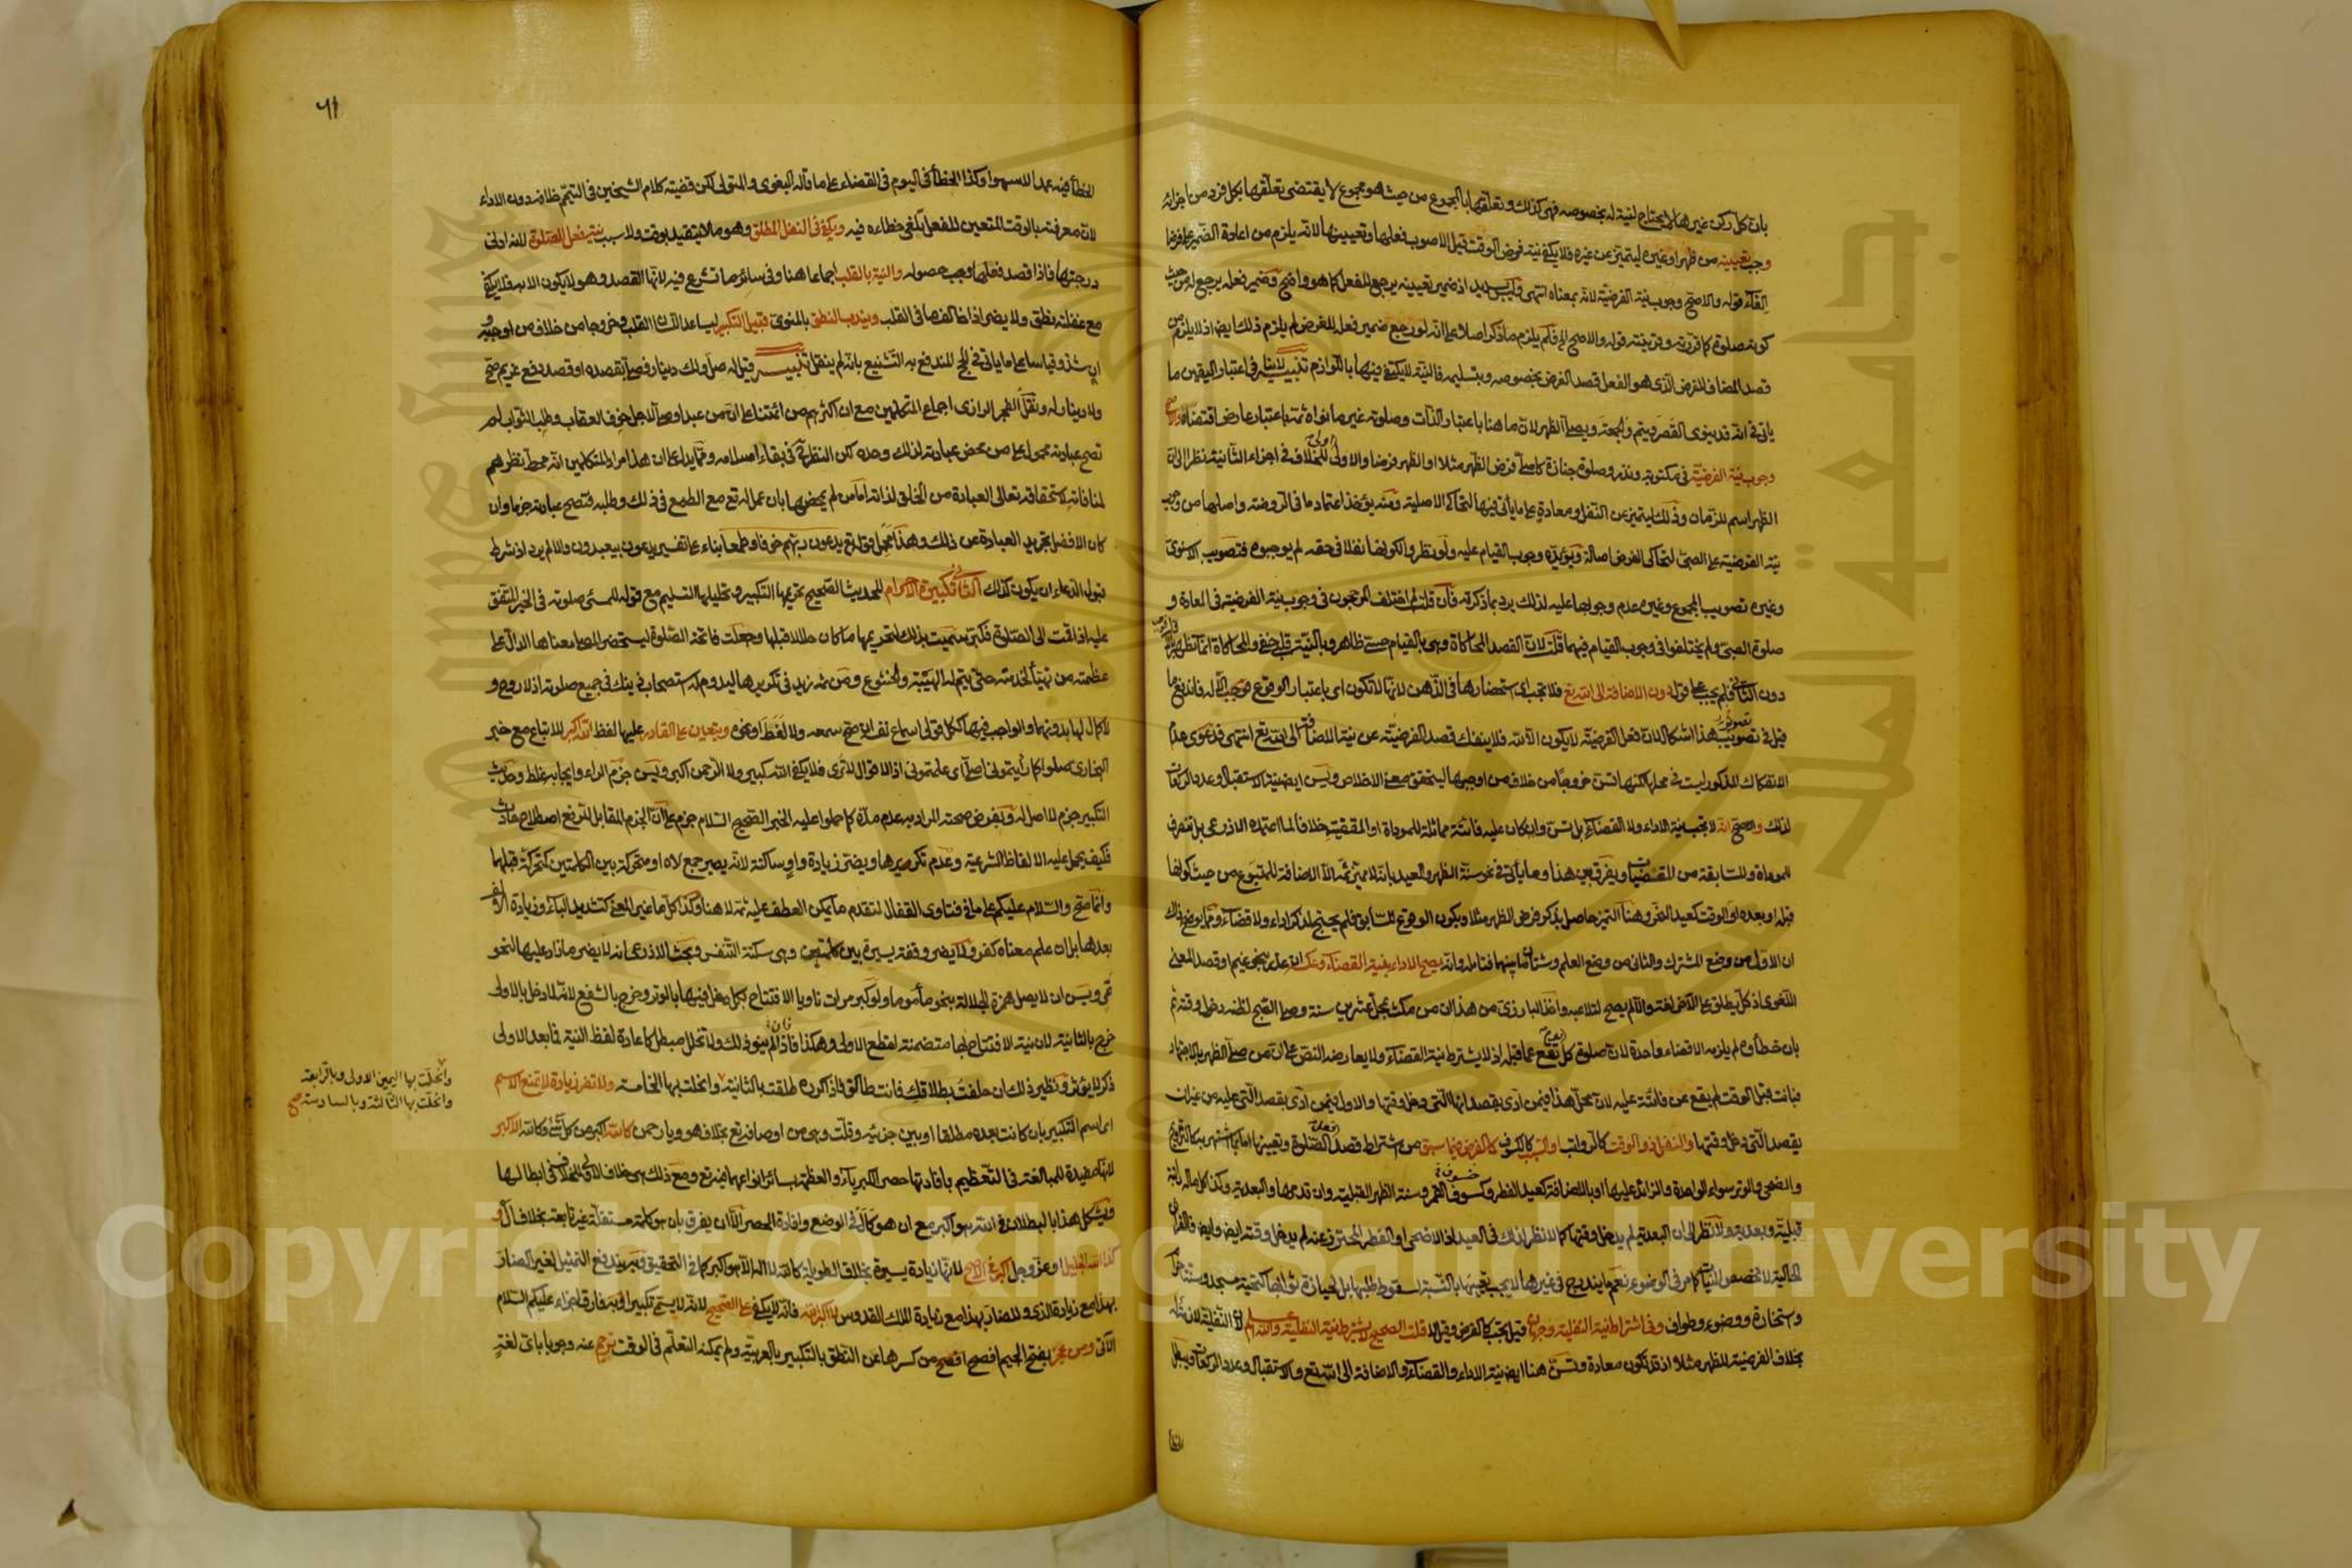 بان كل ركن غيرها لا يحتاج لنية له بخصوصه فهي كذلك وتعلقها بالمجموع من حيث هو مجموع لا يقتضي تعلقها بكل فرد من اجزائه
وجب تعيينه من ظهر او غيره ليتميز عن غيره فلا يكفي نية فرض الوقت قيل الاصوب فعلها وتعيينها لانه يلزم من اعادة الضمير على فرضا
الغاء قوله والاصح وجوب نية الفرضية لانه بمعناه انتهى وليس بسديد اذ ضمير تعيينه يرجع للفعل كما هو واضح وضمير فعله يرجع له من حيث
كونه صلوة كما قررته وقرينته قوله والاصح الخ فلم يلزم ما ذكر اصلا على انه لو رجع ضمير فعله للفرض لم يلزم ذلك ايضا اذ لا يلزم من
قصد المضاف للفرض الذي هو الفعل قصد الفرض بخصوصه وبتسليمه فالنية لا يكتفى فيها باللوازم تنبيه لا ينافي اعتبار التعيين ما
ياتي في انه قد ينوي القصر ويتم والجمعة ويصلي الظهر لان ما هنا باعتبار الذات وصلوته غير ما نواه ثمة باعتبار عارض اقتضاه والاصح
وجوب نية الفرضية في مكتوبة ونذر وصلوة جنازة كاصلي فرض الظهر مثلا او الظهر فرضا والاولى اولى للخلاف في اجزاء الثانية نظرا الى ان
الظهر اسم للزمان وذلك ليتميز عن النفل ومعادة على ما ياتي فيها لتحاكي الاصلية ومنه يؤخذ اعتماد ما في الروضة واصلها من وجوب
نية الفرضية على الصبي لتحاكي الفرض اصالة ويؤيده وجوب القيام عليه ولو نظروا لكونها نفلا في حقه لم يوجبوه فتصويب الاسنوي
وغيره تصويب المجموع وغيره عدم وجوبها عليه لذلك يرد بما ذكرته فان قلت لم اختلف المرجحون في وجوب نية الفرضية في المعادة و
صلوة الصبي ولم يختلفوا في وجوب القيام فيهما قلت لان القصد المحاكاة وهي بالقيام حسي ظاهر وبالنية قلبي خفي والمحاكاة انما تظهر بالاول
دون الثاني فلم يجب على قوله دون الاضافة الى الله تع فلا تجب اي استحضارها في الذهن لانها لا تكون اي باعتبار الوقوع
قيل في تصويب هذا اشكال لان فعل الفرضية لا يكون الا لله فلا ينفك قصد الفرضية عن نية الاضافة الى الله تع انتهى فدعوى عدم
الانفكاك المذكور ليست في محلها لكنها تسن خروجا من خلاف من اوجبها ليتحقق معنى الاخلاص وليس ايضا نية الاستقبال وعدد الركعات
لذلك والاصح انه لا تجب نية الاداء ولا القضاء بل تسن وان كان عليه فائتة مماثلة للموداة او المقضية خلافا لما اعتمده الاذرعي بل تنصرف
للموداة وللسابقة من المقضيات ويفرق بين هذا وما يأتي في نحو سنة الظهر والعيد بانه لا مميز ثمه الا الاضافة للمتبوع من حيث كونها
قبله او بعده او الوقت كعيد النحر وهنا التميز حاصل بذكر فرض الظهر مثلا وبكون الوقوع للسابق فلم يحتج لذكر اداء ولا قضاء ومما يوضح ذلك
ان الاول من وضع المشترك والثاني من وضع العلم وشتان ما بينهما فتامله وانه يصح الاداء بنية القضاء وعكسه ان عذر بنحو غيم او قصد المعنى
اللغوي اذ كل يطلق على الاخر لغة والا لم يصح لتلاعبه واخذ البارزي من هذا ان من مكث بمحل عشرين سنة وصلى الصبح لظنه دخول وقته ثم
بان خطأوه لم يلزمه الا قضاء واحدة لان صلوة كل يوم تقع عما قبله اذ لا يشترط نية القضاء ولا يعارضه النص على ان من صلى الظهر بالاجتهاد
فبانت قبل الوقت لم يقع عن فائتة عليه لان محل هذا فيمن ادى بقصد انها التي دخل وقتها والاول فيمن ادى بقصد التي عليه من غير ان
يقصد التي دخل وقتها والنفل ذو الوقت كالرواتب والسبب كالكسوف كالفرض فيما سبق من اشتراط قصد فعل الصلوة وتعيينها اما بما اشتهر به كالتراويح
والضحى والوتر سواء الواحدة والزائد عليها او بالاضافة كعيد الفطر وكسوف القمر وسنة الظهر القبلية وان قدمها والبعدية وكذا كل ما له راتبة
قبلية وبعدية ولا نظر الى ان البعدية لم يدخل وقتها كما لا نظر لذلك في العيد اذ الاضحى او الفطر المحترز عنه لم يدخل وقته ايضا
الحالية لا تخصص النيات كما مر في الوضوء نعم ما يندرج في غيرها لا يجب تعيينها بالنسبة لسقوط طلبها بل لحيازة ثوابها كتحية مسجد وسنة احرام
واستخارة ووضوء وطواف وفي اشتراط نية النفلية وجهان قيل يجب كالفرض وقيل لا قلت الصحيح لا يشترط نية النفلية والله اعلم لان النفلية لازمة له
بخلاف الفرضية للظهر مثلا اذ قد تكون معادة وتسن هنا ايضا نية الاداء والقضاء والاضافة الى الله تع والاستقبال وعدد الركعات ويبطل
٦١
الخطأ فيه عمدا لا سهوا وكذا الخطأ في اليوم في القضاء على ما قاله البغوي والمتولي لكن قضية كلام الشيخين في التيمم خلافه دون الاداء
لان معرفته بالوقت المتعين للفعل تلغي خطاءه فيه ويكفي في النفل المطلق وهو ما لا يتقيد بوقت ولا سبب نية فعل الصلوة لانه ادنى
درجتها فاذا قصد فعلها وجب حصوله والنية بالقلب اجماعا هنا وفي سائر ما تشرع فيه لانها القصد وهو لا يكون الا به فلا يكفي
مع غفلته نطق ولا يضر اذا خالف ما في القلب ويندب النطق بالمنوي قبيل التكبير ليساعد اللسان القلب وخروجا من خلاف من اوجبه
وان شذ وقياسا على ما ياتي في الحج المندفع به التشنيع بانه لم ينقل تنبيه قيل له صل ولك دينار فصلى بقصده او قصد دفع غريم صح
ولا دينار له ونقل الفخر الرازي اجماع المتكلمين مع ان اكثرهم من ائمتنا على ان من عبد او صلى لاجل خوف العقاب وطلب الثواب لم
تصح عبادته محمول على من محض عبادته لذلك وحده لكن النظر في بقاء اسلامه ومما يدل على ان هذا مراد المتكلمين انه محط نظرهم
لمنافاته لاستحقاقه تعالى العبادة من الخلق لذاته اما من لم يمحضها بان عمل له تع مع الطمع في ذلك وطلبه فتصح عبادته جزما وان
كان الافضل تجريد العبادة عن ذلك وهذا محمل قوله تع يدعون ربهم خوفا وطمعا بناء على تفسير يدعون بيعبدون والا لم يرد اذ شرط
قبول الدعاء ان يكون كذلك الثاني تكبيرة الاحرام للحديث الصحيح تحريمها التكبير وتحليلها التسليم مع قوله للمسئ صلوته في الخبر المتفق
عليه اذا قمت الى الصلوة فكبر سميت بذلك لتحريمها ما كان حلالا قبلها وجعلت فاتحة الصلوة ليستحضر المصلي معناها الدال على
عظمة من تهيأ لخدمته حتى يتم له الهيبة والخشوع ومن ثمه زيد في تكريرها ليدوم له استصحاب ذينك في جميع صلوته اذ لا روح و
لا كمال لها بدونهما والواجب فيها ككل قولي اسماع نفسه ان صح سمعه ولا لغط او نحوه ويتعين على القادر عليها لفظ الله اكبر للاتباع مع خبر
البخاري صلوا كما رأيتموني اصلي اي علمتموني اذ الاقوال لا ترى فلا يكفي الله كبير ولا الرحمن اكبر ويسن جزم الراء وايجابه غلط وحديث
التكبير جزم لا اصل له وبفرض صحته المراد به عدم مده كما حملوا عليه الخبر الصحيح السلام جزم على ان الجزم المقابل للرفع اصطلاح حادث
فكيف يحمل عليه الالفاظ الشرعية وعدم تكريرها ويضر زيادة واو ساكنة لانه يصير جمع لاه او متحركة بين الكلمتين كمتحركة قبلها
وانما صح والسلام عليكم على ما في فتاوى القفال لتقدم ما يمكن العطف عليه ثمة لا هنا وكذا كل ما غير المعنى كتشديد الباء وزيادة الف
بعدها بل ان علم معناه كفر ولا يضر وقفة يسيرة بين كلمتيه وهي سكتة التنفس وبحث الاذرعي انه لا يضر ما زاد عليها لنحو
عي ويسن ان لا يصل همزة الجلالة بنحو مأموما ولو كبر مرات ناويا الافتتاح بكل دخل فيها بالوتر وخرج بالشفع لانه لما دخل بالاولى
خرج بالثانية لان نية الافتتاح بها متضمنة لقطع الاولى وهكذا فان لم ينو ذلك ولا تخلل مبطل كاعادة لفظ النية فما بعد الاولى
ذكر لا يؤثر ونظير ذلك ان حلفت بطلاقك فانت طالق فاذا كرره طلقت بالثانية وانحلت بها الخامسة ولا تضر زيادة لا تمنع الاسم
وانحلت بها اليمين الاولى وبالرابعة
وانحلت بها الثالثة وبالسادسة صح
اي اسم التكبير بان كانت بعده مطلقا او بين جزئيه وقلت وهي من اوصافه تع بخلاف هو ويا رحمن كالله اكبر من كل شئ وكالله الاكبر
لانها مفيدة للمبالغة في التعظيم بافادتها حصر الكبرياء والعظمة بسائر انواعهما فيه تع ومع ذلك هي خلاف الاولى للخلاف في ابطالها
ويشكل هذا بالبطلان في الله هو اكبر مع ان هو كأل في الوضع وافادة الحصر الا ان يفرق بان هو كلمة مستقلة غير تابعة بخلاف أل و
كذا الله الجليل او عز وجل اكبر في الاصح لانها زيادة يسيرة بخلاف الطويلة كالله لا اله الا هو اكبر كما في التحقيق وبه يندفع التمثيل لغير الضار
بهذا مع زيادة الذي وللضار بهذا مع زيادة الملك القدوس لا اكبر الله فانه لا يكفي على الصحيح لانه لا يسمى تكبيرا وبه فارق اجزاء عليكم السلام
الآتي ومن عجز بفتح الجيم افصح من كسرها عن النطق بالتكبير بالعربية ولم يمكنه التعلم في الوقت ترجم عنه وجوبا باي لغة